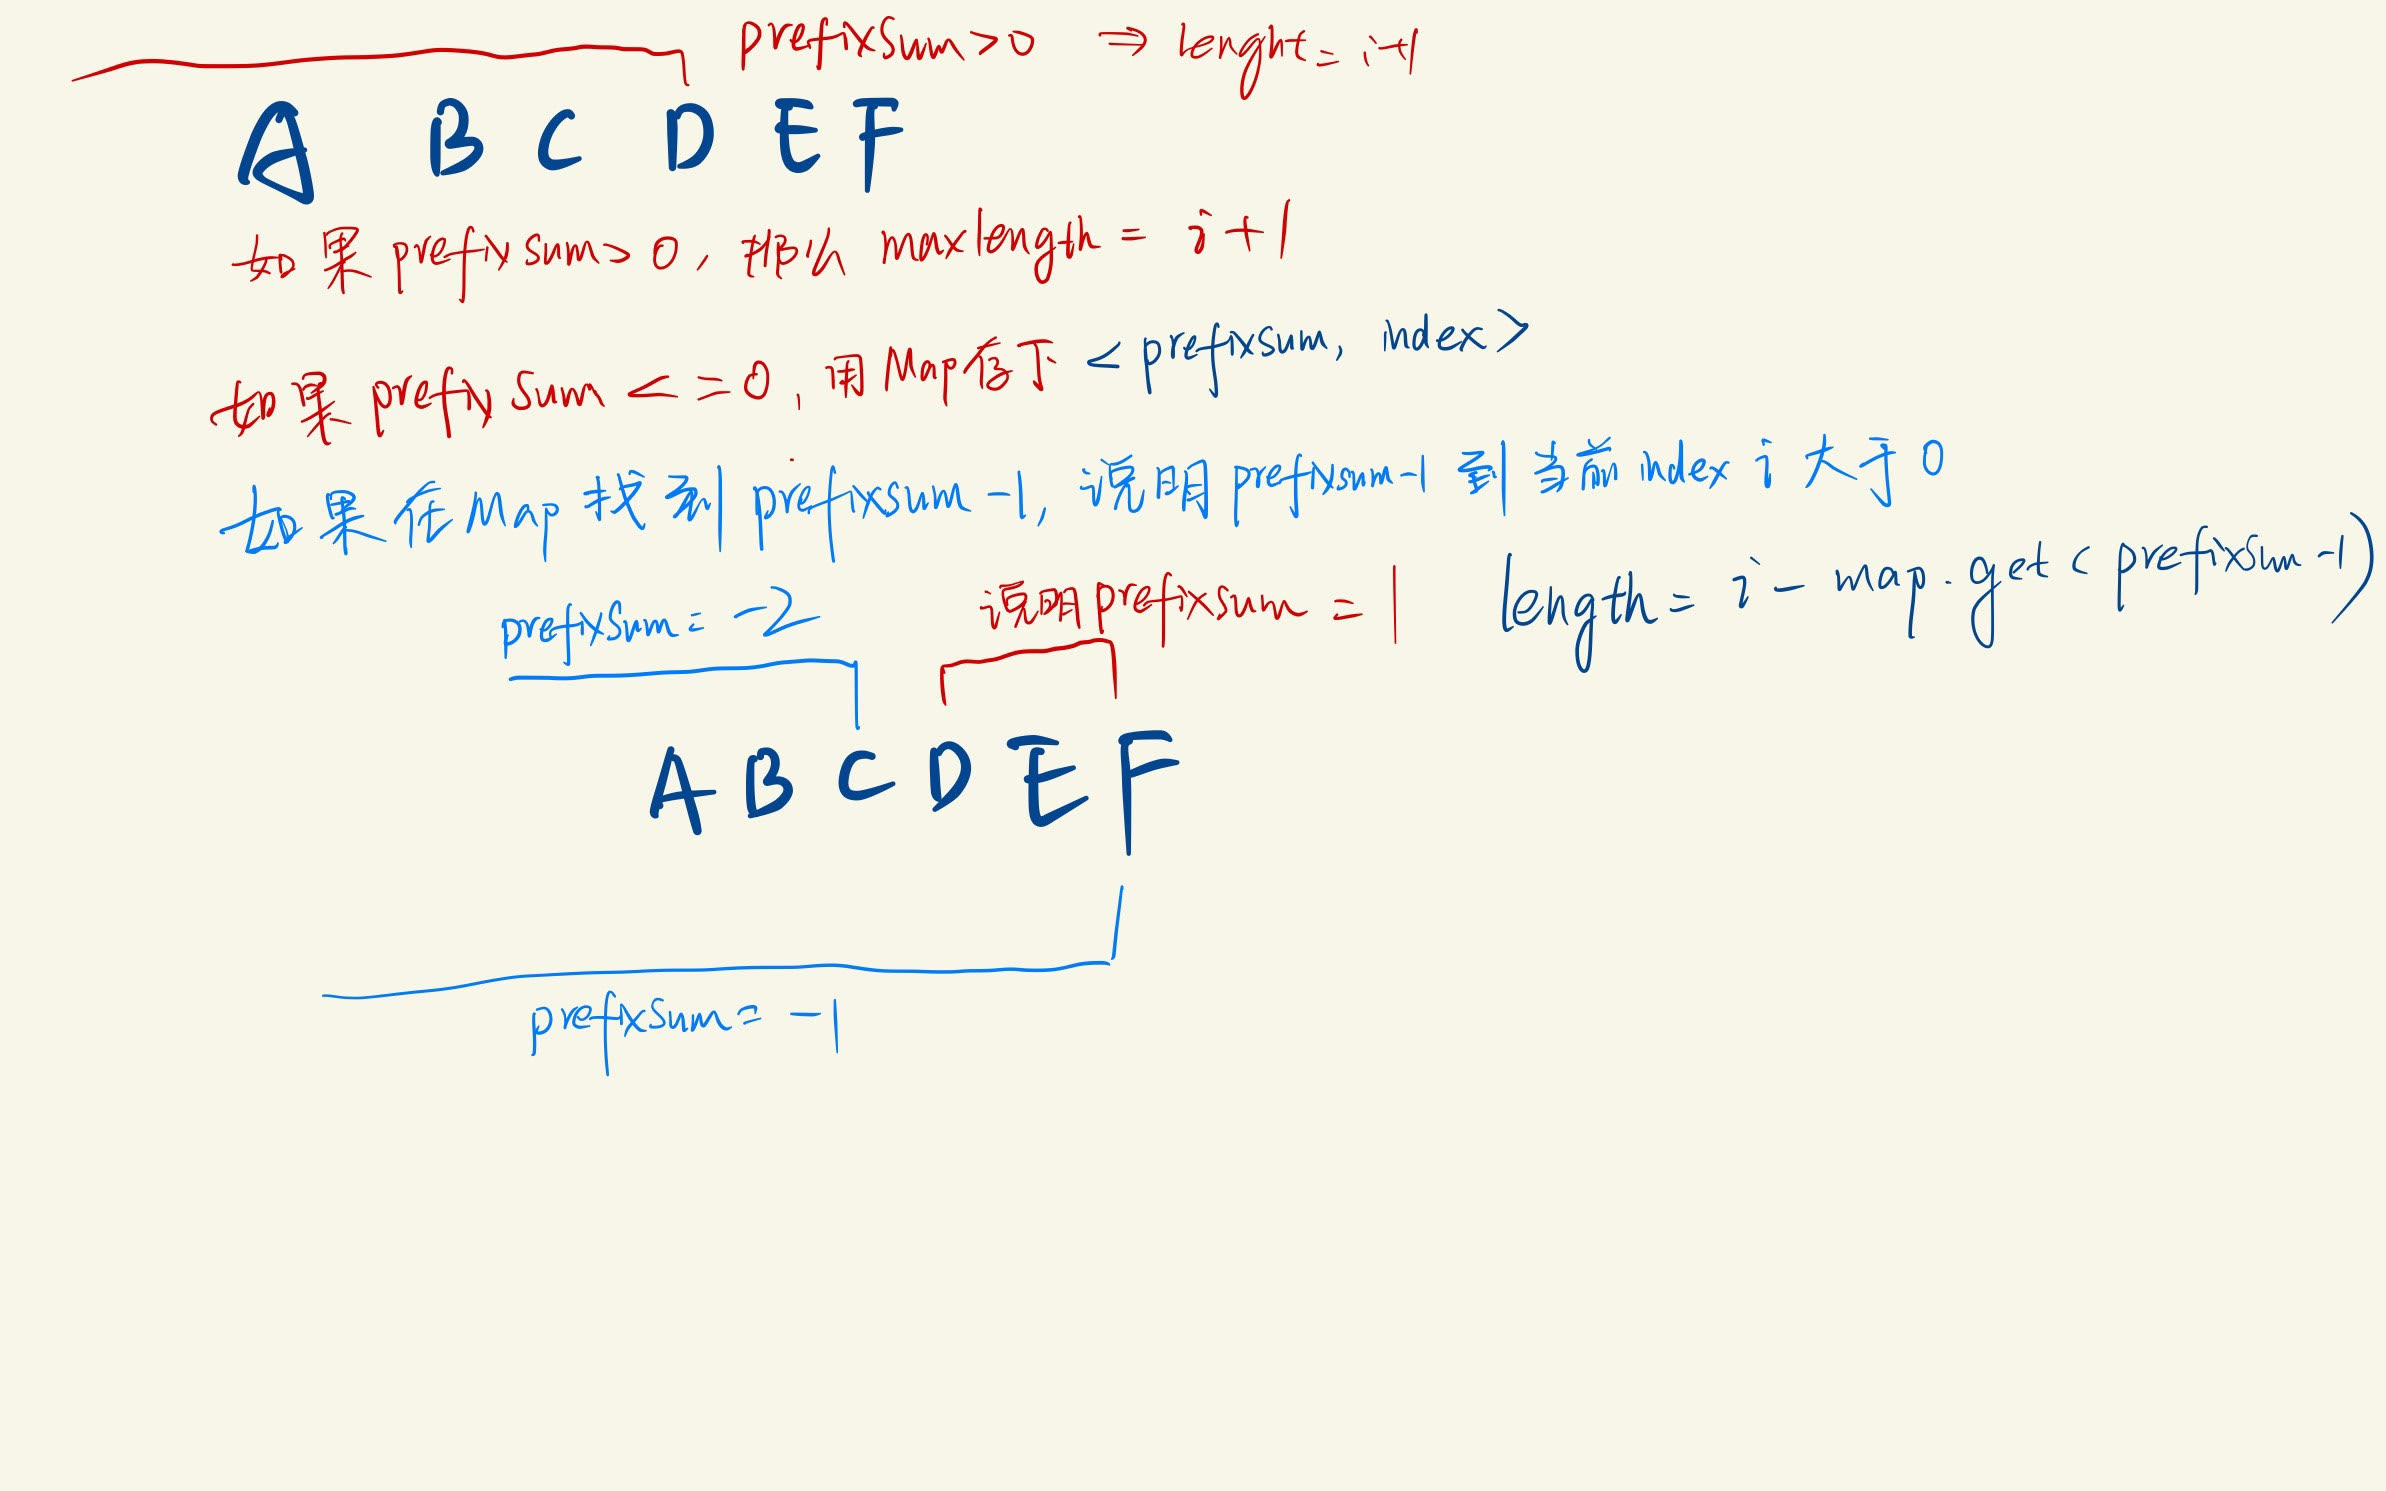 prefixSum>0 ⇒ lenght = i+1
A B C D E F
如果prefixsum>0, 那么 maxlength = i+1
如果prefixsum<=0, 用Map存下 <prefixsum, index>
如果在Map找到prefixsum-1, 说明prefixsum-1到当前index i 大于0
prefixSum = -2
说明prefixsum = 1
length = i - map.get(prefixSum-1)
A B C D E F
prefixSum = -1